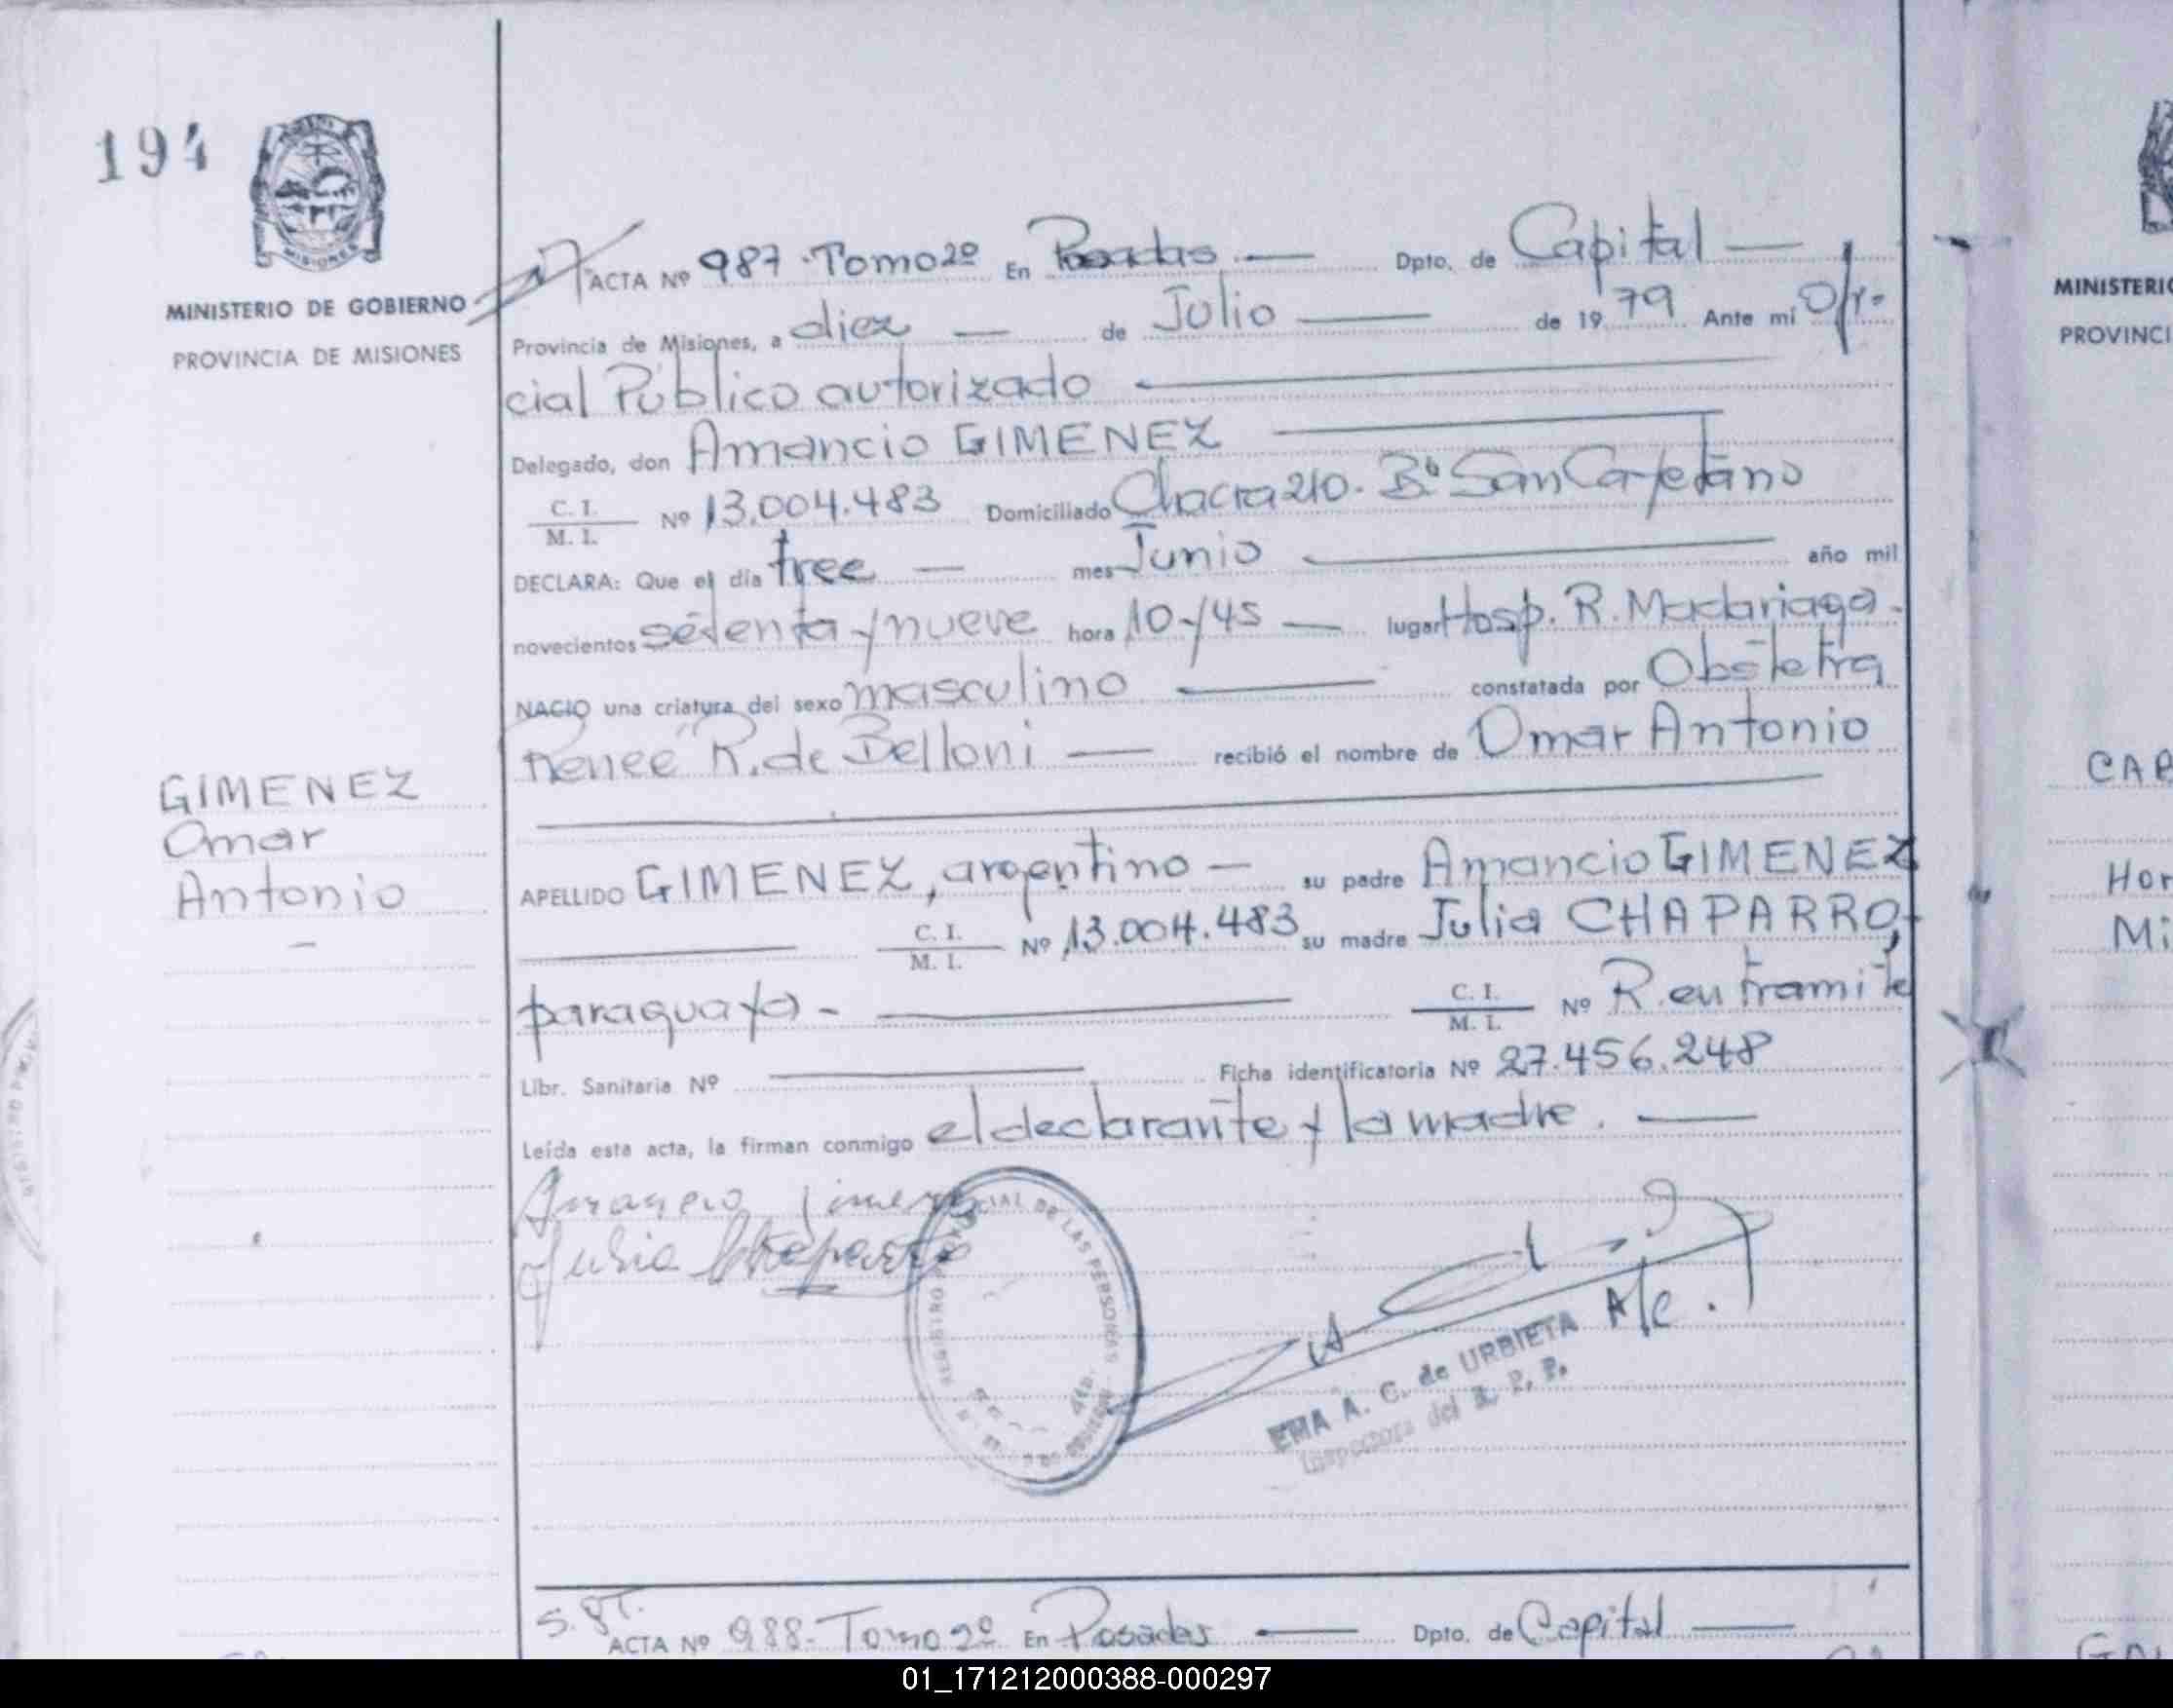 194
MISIONES
MINISTERIO DE GOBIERNO
PROVINCIA DE MISIONES
ACTA Nº 987 - Tomo 2º En Posadas — Dpto. de Capital —
Provincia de Misiones, a diez — de Julio — de 1979 Ante mi Ofi-
cial Público autorizado
Delegado, don Amancio GIMENEZ
C. I. / M. I. Nº 13.004.483 Domiciliado Chacra 210. Bº San Cayetano
DECLARA: Que el día trece — mes Junio — año mil
novecientos setenta y nueve hora 10 y 45 — lugar Hosp. R. Madariaga -
NACIO una criatura del sexo masculino — constatada por Obstetra
Renee R. de Belloni — recibió el nombre de Omar Antonio
GIMENEZ
Omar
Antonio
APELLIDO GIMENEZ, argentino — su padre Amancio GIMENEZ
C. I. / M. I. Nº 13.004.483 su madre Julia CHAPARRO,
paraguaya - — C. I. / M. I. Nº R. en tramite
Libr. Sanitaria Nº — Ficha identificatoria Nº 27.456.248
Leída esta acta, la firman conmigo el declarante y la madre. —
Amancio Jimenez
Julia Chaparro
DE LAS PERSONAS
EMA A. C. de URBIETA A/c.
Inspectora del R. P. P.
S. gt.
ACTA Nº 988 - Tomo 2º En Posadas — Dpto. de Capital —
MINISTERIO
PROVINCI
CAP
Hor
Mi
01_171212000388-000297